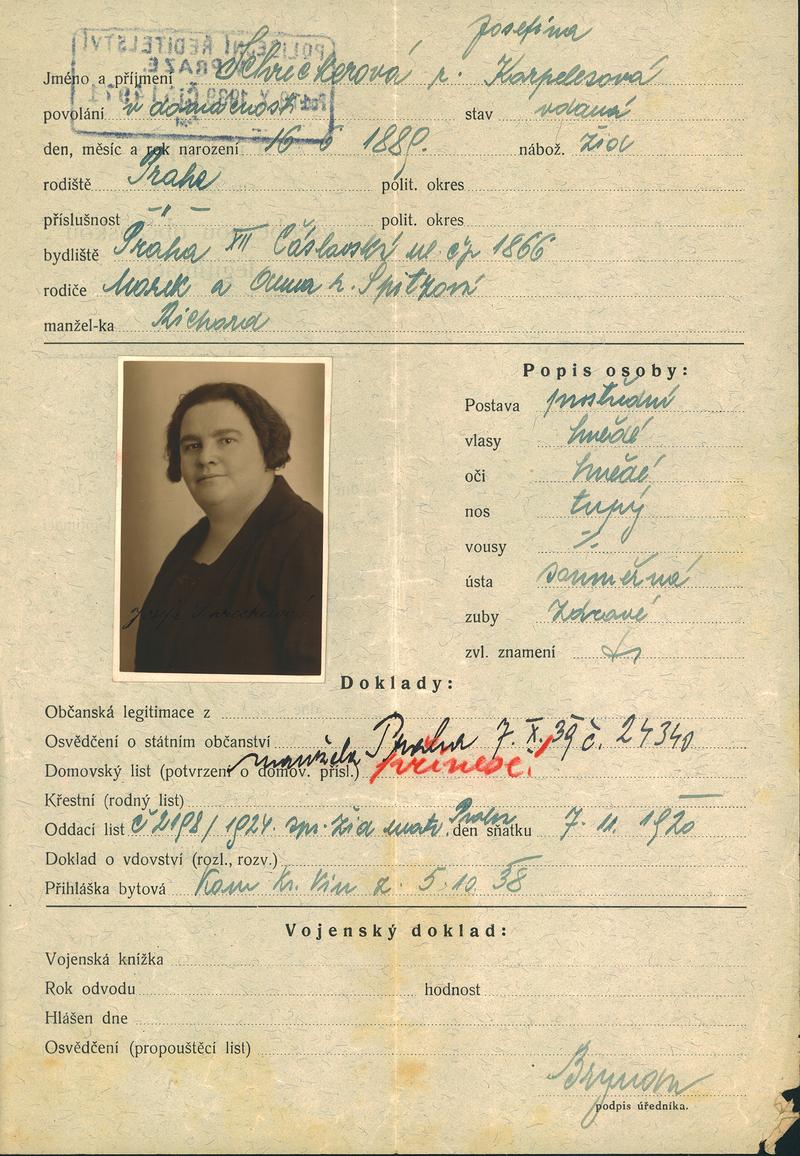 Josefina
Jméno a příjmení Schrickerová r. Karpelesová
povolání v domácnosti stav vdaná
den, měsíc a rok narození 16 6 1889. nábož. žid
rodiště Praha polit. okres
příslušnost –"– polit. okres
bydliště Praha XII Čáslavská ul. čp 1866
rodiče Marek a Anna r. Spitzová
manžel-ka Richard
Popis osoby:
Postava prostřední
vlasy hnědé
oči hnědé
nos tupý
vousy
ústa souměrná
zuby zdravé
zvl. znamení
Doklady:
Občanská legitimace z
Osvědčení o státním občanství manžela Praha 7. X. 39 č. 24340
Domovský list (potvrzení o domov. přísl.) přinese!
Křestní (rodný list)
Oddací list č 2198/1924. žid matr. Praha, den sňatku 7. 11. 1920
Doklad o vdovství (rozl., rozv.)
Přihláška bytová Kom. Kr. Vin z. 5. 10. 38
Vojenský doklad:
Vojenská knížka
Rok odvodu hodnost
Hlášen dne
Osvědčení (propouštěcí list)
podpis úředníka.